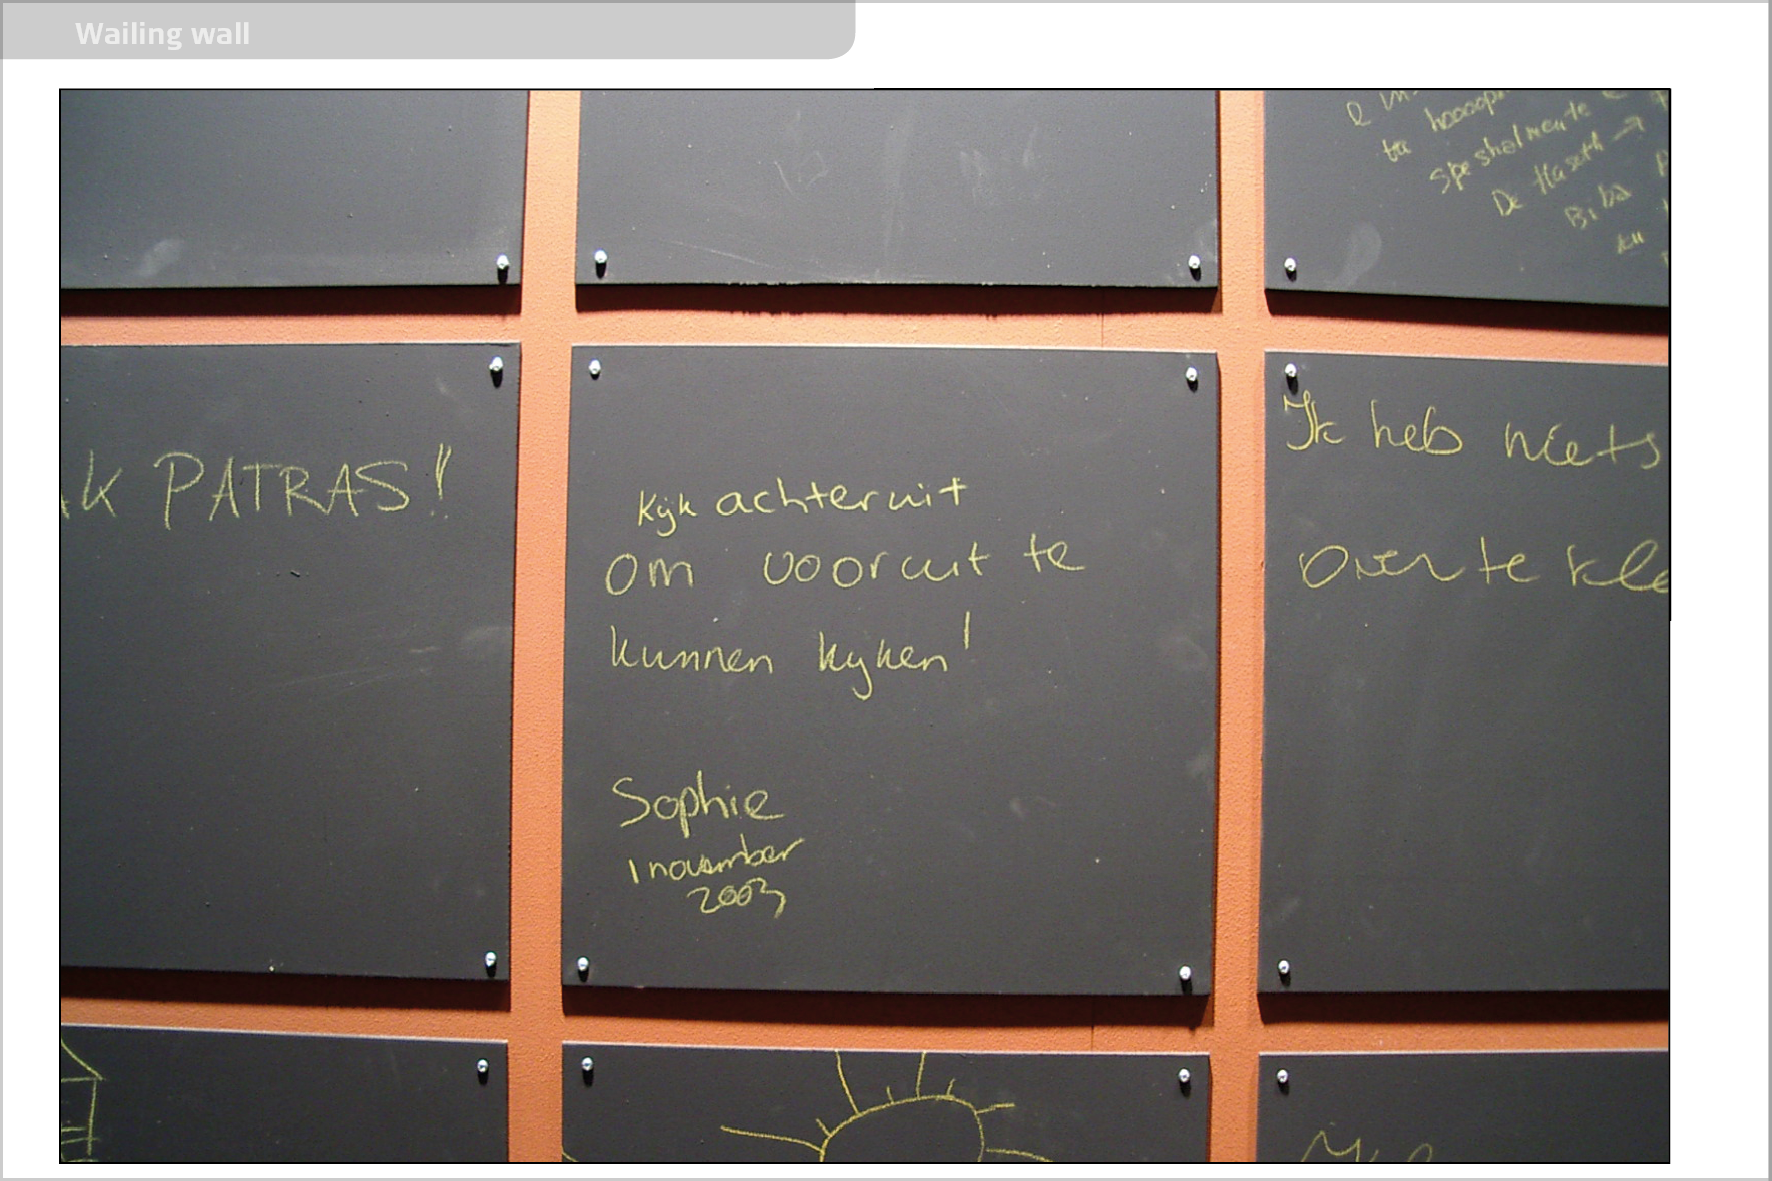 Wailing wall
ta hooop
speshalmente
De Haseth →
Biba
ku
K PATRAS!
Kijk achteruit
om vooruit te
kunnen kijken!
Sophie
1 november
2003
Ik heb niets
over te kle